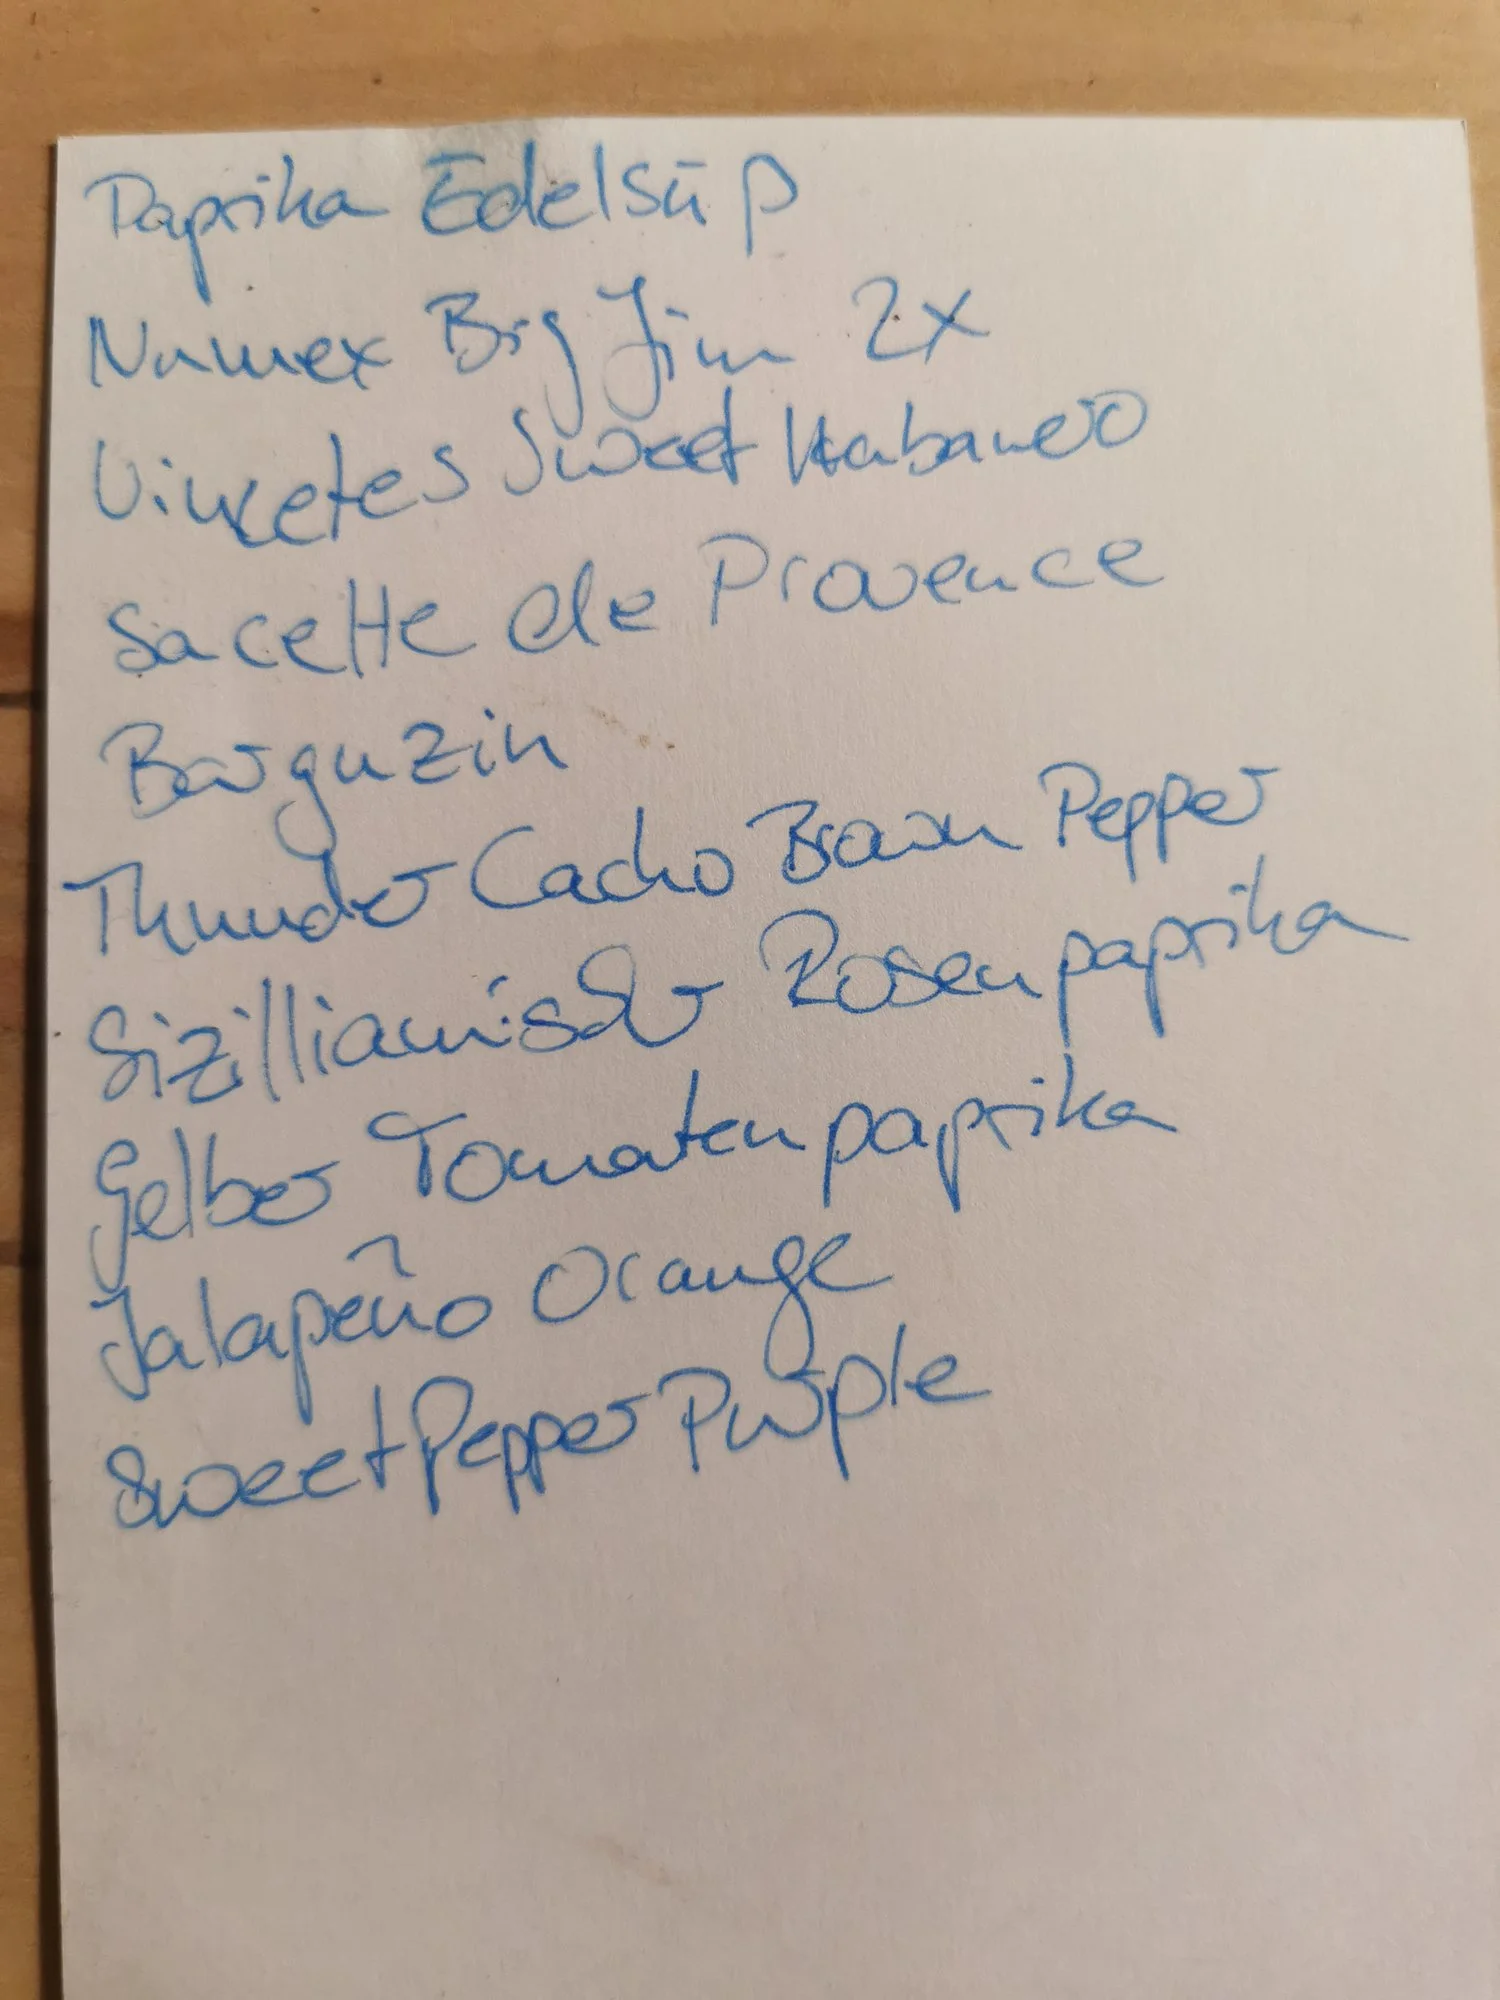 Paprika Edelsüß
Numex Big Jim 2x
Sweet Habanero
Sacette de Provence
Barguzin
Thunder Cacho Braun Pepper
Sizillianischer Rosenpaprika
Gelber Tomatenpaprika
Jalapeño Orange
Sweet Pepper Purple